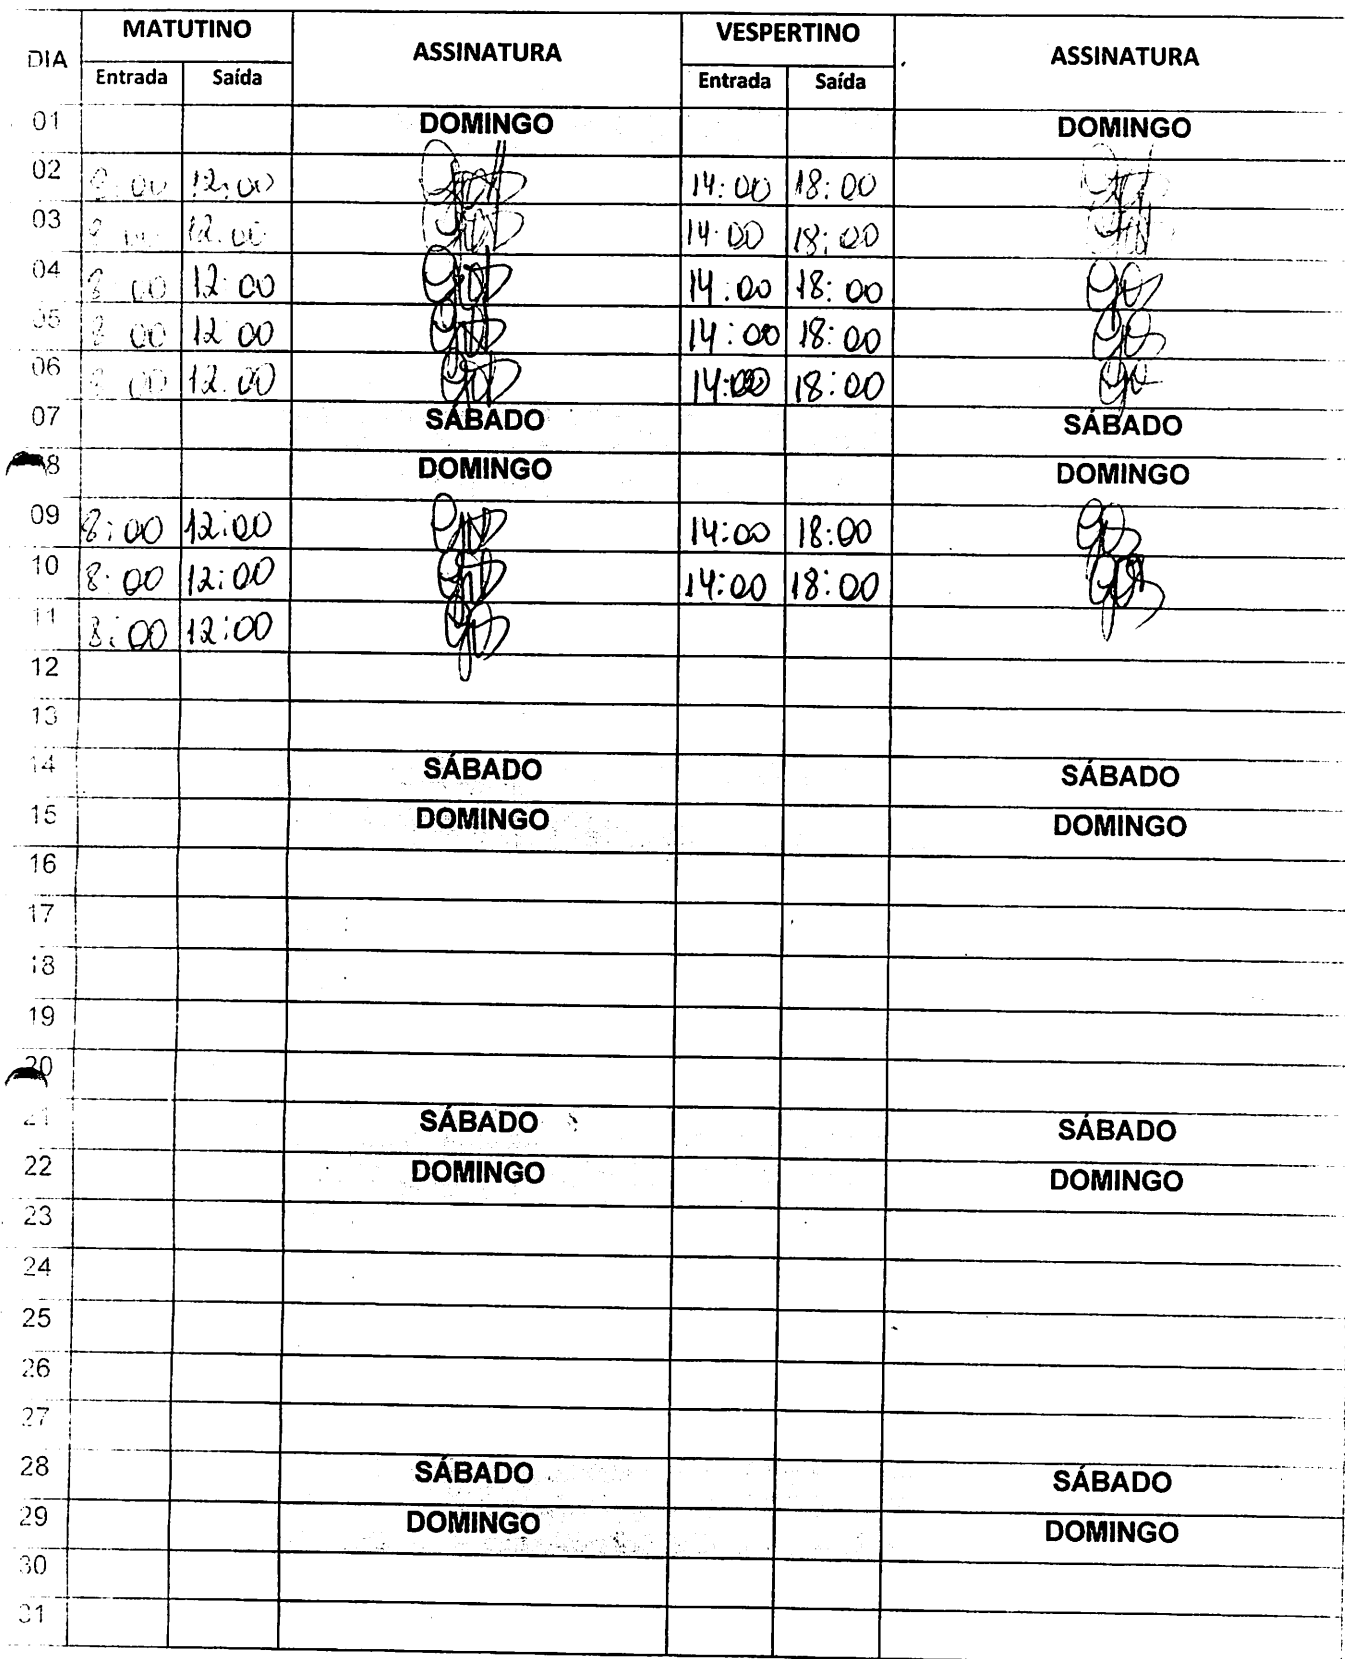 DIA MATUTINO ASSINATURA VESPERTINO ASSINATURA
Entrada Saída Entrada Saída
01 DOMINGO DOMINGO
02 8:00 12:00 14:00 18:00
03 12:00 14:00 18:00
04 8:00 12:00 14:00 18:00
05 8:00 12:00 14:00 18:00
06 8:00 12:00 14:00 18:00
07 SÁBADO SÁBADO
08 DOMINGO DOMINGO
09 8:00 12:00 14:00 18:00
10 8:00 12:00 14:00 18:00
11 8:00 12:00
12
13
14 SÁBADO SÁBADO
15 DOMINGO DOMINGO
16
17
18
19
20
21 SÁBADO SÁBADO
22 DOMINGO DOMINGO
23
24
25
26
27
28 SÁBADO SÁBADO
29 DOMINGO DOMINGO
30
31